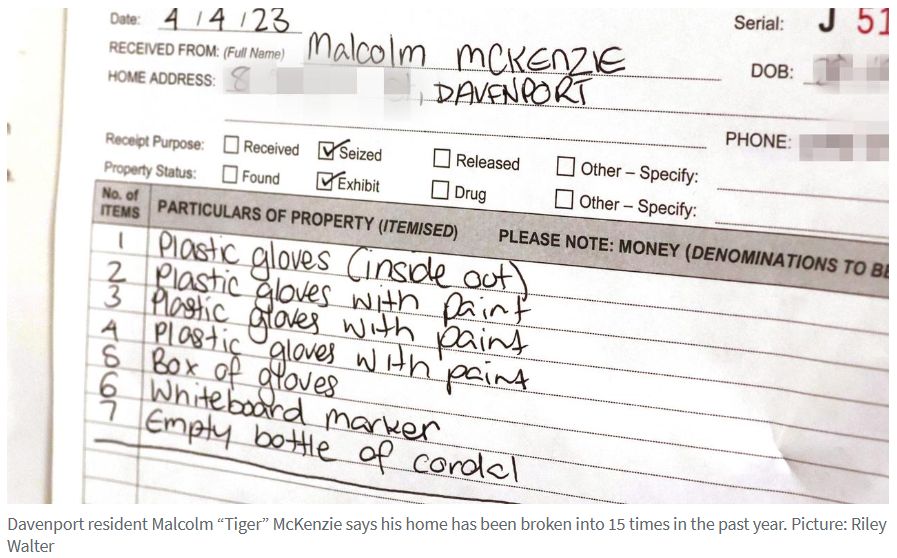 Date: 4/4/23 Serial: J 51
RECEIVED FROM: (Full Name) Malcolm MCKENZIE
HOME ADDRESS: 8 , DAVENPORT DOB:
PHONE:
Receipt Purpose: Received Seized Released Other – Specify:
Property Status: Found Exhibit Drug Other – Specify:
No. of ITEMS PARTICULARS OF PROPERTY (ITEMISED) PLEASE NOTE: MONEY (DENOMINATIONS TO BE
1 Plastic gloves (inside out)
2 Plastic gloves with paint
3 Plastic gloves with paint
4 Plastic gloves with paint
5 Box of gloves
6 Whiteboard marker
7 Empty bottle of cordal
Davenport resident Malcolm “Tiger” McKenzie says his home has been broken into 15 times in the past year. Picture: Riley
Walter